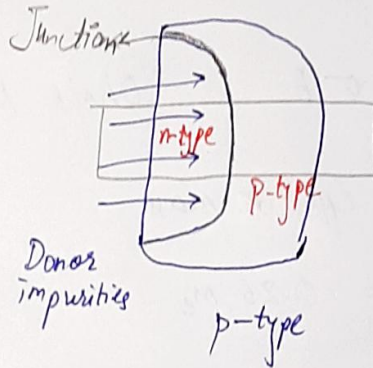 Junction
n-type
p-type
Donor
impurities
p-type